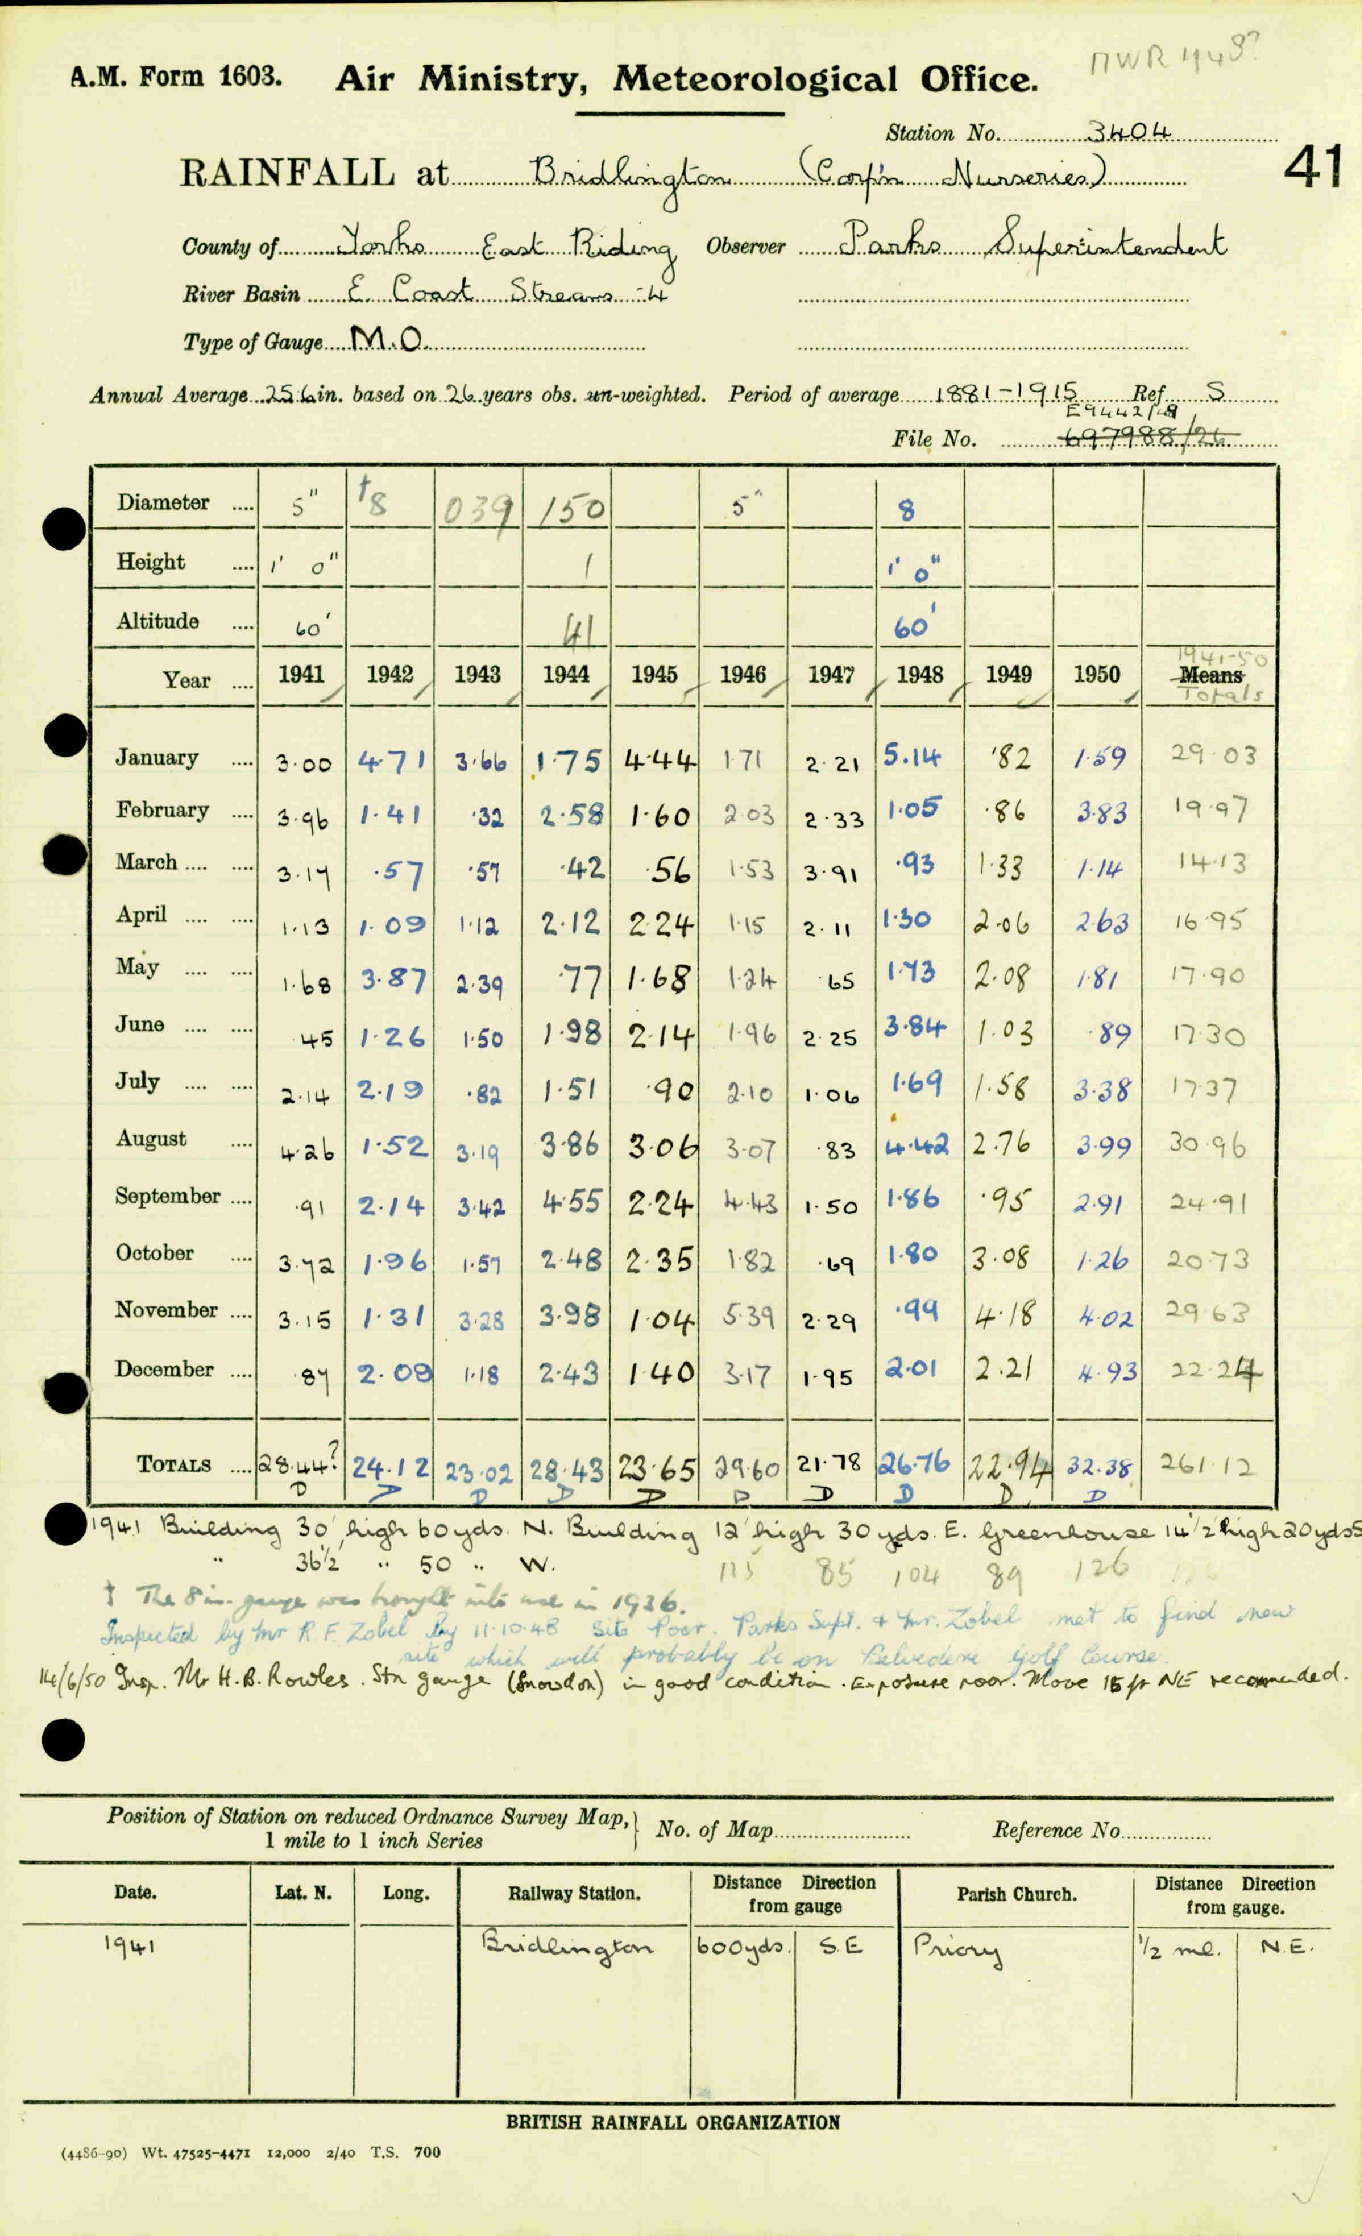 MWR 1948?
A.M. Form 1603. Air Ministry, Meteorological Office.
Station No. 3404
41
RAINFALL at Bridlington (Corp'n Nurseries)
County of Yorks East Riding Observer Parks Superintendent
River Basin E. Coast Streams -4
Type of Gauge M.O.
Annual Average 25.6 in. based on 26 years obs. un-weighted. Period of average 1881-1915 Ref. S
E9442/48
File No. 697988/26
Diameter .... 5" †8 039 150 5" 8
Height .... 1' 0" 1 1' 0"
Altitude .... 60' 41 60'
1941-50
Year .... 1941 1942 1943 1944 1945 1946 1947 1948 1949 1950 Means
Totals
January .... 3.00 4.71 3.66 1.75 4.44 1.71 2.21 5.14 .82 1.59 29.03
February .... 3.96 1.41 .32 2.58 1.60 2.03 2.33 1.05 .86 3.83 19.97
March .... .... 3.17 .57 .57 .42 .56 1.53 3.91 .93 1.33 1.14 14.13
April .... .... 1.13 1.09 1.12 2.12 2.24 1.15 2.11 1.30 2.06 2.63 16.95
May .... .... 1.68 3.87 2.39 .77 1.68 1.24 .65 1.73 2.08 1.81 17.90
June .... .... .45 1.26 1.50 1.98 2.14 1.96 2.25 3.84 1.03 .89 17.30
July .... .... 2.14 2.19 .82 1.51 .90 2.10 1.06 1.69 1.58 3.38 17.37
August .... 4.26 1.52 3.19 3.86 3.06 3.07 .83 4.42 2.76 3.99 30.96
September .... .91 2.14 3.42 4.55 2.24 4.43 1.50 1.86 .95 2.91 24.91
October .... 3.72 1.96 1.57 2.48 2.35 1.82 .69 1.80 3.08 1.26 20.73
November .... 3.15 1.31 3.28 3.98 1.04 5.39 2.29 .99 4.18 4.02 29.63
December .... .87 2.09 1.18 2.43 1.40 3.17 1.95 2.01 2.21 4.93 22.24
TOTALS .... 28.44? 24.12 23.02 28.43 23.65 29.60 21.78 26.76 22.94 32.38 261.12
D D D D D D D D D D
1941 Building 30' high 60 yds. N. Building 12' high 30 yds. E. Greenhouse 14½' high 20 yds S
" 36½' " 50 " W.
115 85 104 89 126
† The 8 in. gauge was brought into use in 1936.
Inspected by Mr R. F. Zobel 11.10.48 Site Poor. Parks Supt. & Mr. Zobel met to find new
site which will probably be on Belvedere Golf Course.
14/6/50 Insp. Mr H. B. Rowles. Stn gauge (Snowdon) in good condition. Exposure poor. Move 15 ft NE recommended.
Position of Station on reduced Ordnance Survey Map, } No. of Map Reference No.
1 mile to 1 inch Series
Date. Lat. N. Long. Railway Station. Distance Direction from gauge Parish Church. Distance Direction from gauge.
1941 Bridlington 600 yds. S.E Priory ½ ml. N.E.
BRITISH RAINFALL ORGANIZATION
(4486-90) Wt. 47525-4471 12,000 2/40 T.S. 700